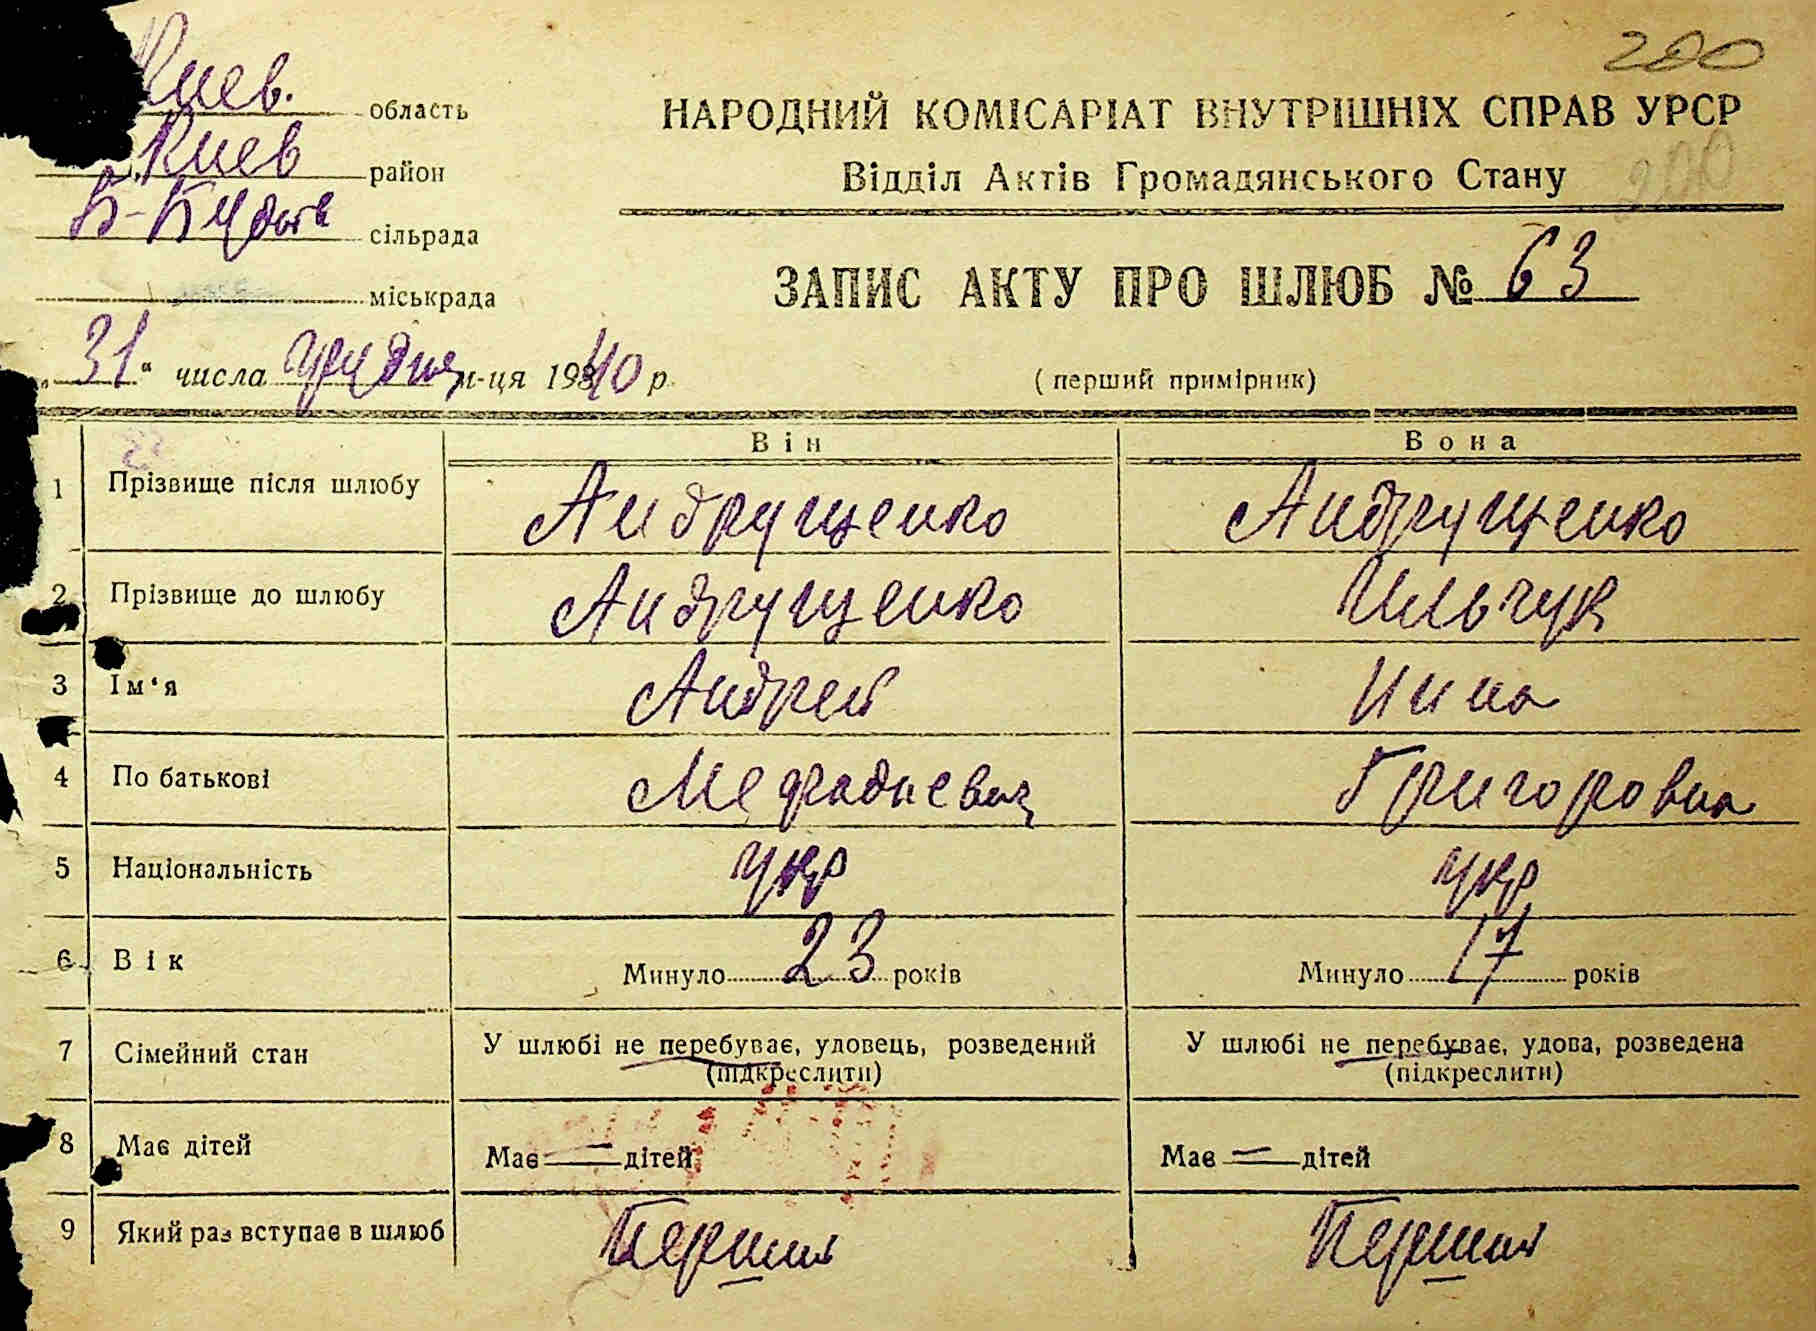 200
Киев. область
НАРОДНИЙ КОМІСАРІАТ ВНУТРІШНІХ СПРАВ УРСР
Киев район
Відділ Актів Громадянського Стану
200
сільрада
ЗАПИС АКТУ ПРО ШЛЮБ № 63
міськрада
„31“ числа грудня м-ця 1940 р.
(перший примірник)
Він Вона
1 Прізвище після шлюбу Андрущенко Андрущенко
2 Прізвище до шлюбу Андрущенко Ильчук
3 Ім'я Андрей Нина
4 По батькові Григоровна
5 Національність укр укр
6 Вік Минуло 23 років Минуло 17 років
7 Сімейний стан У шлюбі не перебуває, удовець, розведений У шлюбі не перебуває, удова, розведена
(підкреслити) (підкреслити)
8 Має дітей Має — дітей Має — дітей
9 Який раз вступає в шлюб Перший Перший